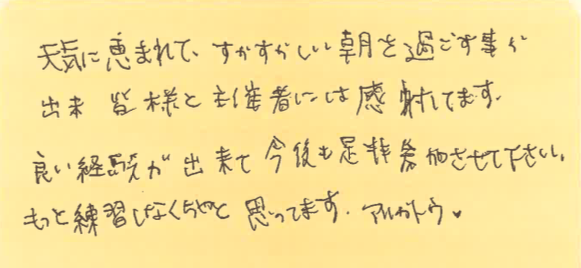 天気に恵まれて、すがすがしい朝を過ごす事が
出来 皆様と主催者には感謝してます.
良い経験が出来て今後も是非参加させて下さい。
もっと練習しなくちゃと思ってます. アルガトウ♥